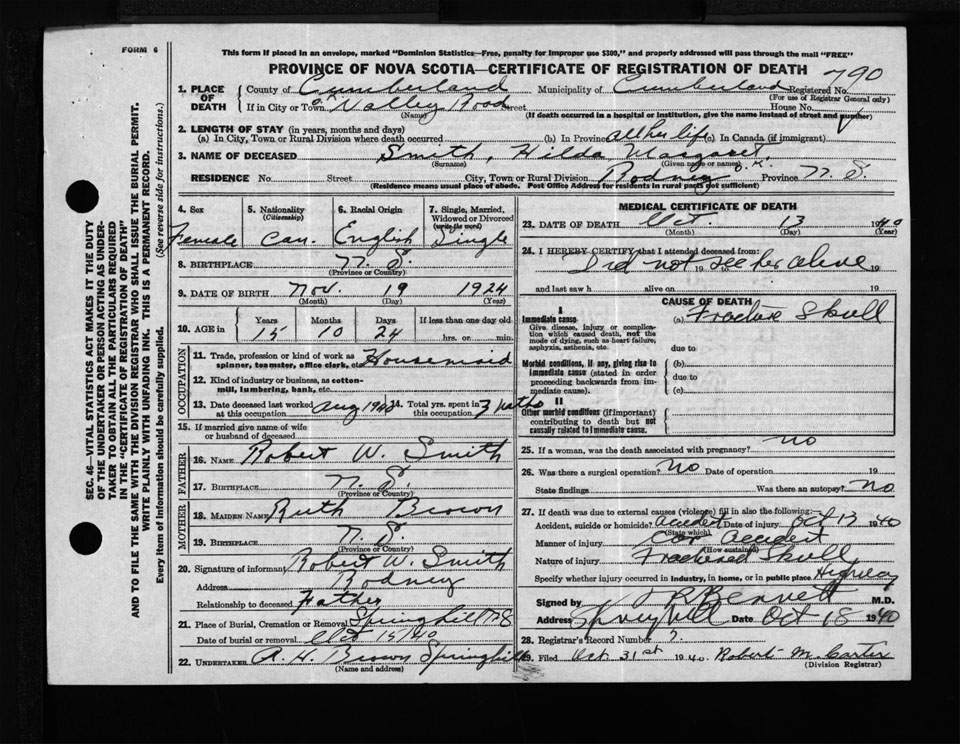 FORM 6
This form if placed in an envelope, marked "Dominion Statistics—Free, penalty for improper use $300," and properly addressed will pass through the mail "FREE"
PROVINCE OF NOVA SCOTIA—CERTIFICATE OF REGISTRATION OF DEATH
790
1. PLACE OF DEATH
County of Cumberland Municipality of Cumberland Registered No.
(For use of Registrar General only)
If in City or Town Valley Road Street House No.
(Name) (If death occurred in a hospital or institution, give the name instead of street and number)
2. LENGTH OF STAY (in years, months and days)
(a) In City, Town or Rural Division where death occurred (b) In Province all her life (c) In Canada (if immigrant)
3. NAME OF DECEASED Smith, Hilda Margaret
(Surname) (Given name or names) O.K.
RESIDENCE No. Street City, Town or Rural Division Rodney Province N. S.
(Residence means usual place of abode. Post Office Address for residents in rural parts not sufficient)
4. Sex Female
5. Nationality (Citizenship) Can.
6. Racial Origin English
7. Single, Married, Widowed or Divorced (write the word) Single
8. BIRTHPLACE N. S.
(Province or Country)
9. DATE OF BIRTH Nov. 19 1924
(Month) (Day) (Year)
10. AGE in Years Months Days If less than one day old
15 10 24 hrs. or min.
OCCUPATION
11. Trade, profession or kind of work as spinner, teamster, office clerk, etc. Housemaid
12. Kind of industry or business, as cotton-mill, lumbering, bank, etc.
13. Date deceased last worked at this occupation Aug 1940 14. Total yrs. spent in this occupation
15. If married give name of wife or husband of deceased
FATHER
16. NAME Robert W. Smith
17. BIRTHPLACE N. S.
(Province or Country)
MOTHER
18. MAIDEN NAME Ruth Brown
19. BIRTHPLACE N. S.
(Province or Country)
20. Signature of informant Robert W. Smith
Address Rodney
Relationship to deceased Father
21. Place of Burial, Cremation or Removal Springhill NS
Date of burial or removal Oct 15/40
22. UNDERTAKER A. H. Brown Springhill
(Name and address)
MEDICAL CERTIFICATE OF DEATH
23. DATE OF DEATH Oct. 13 1940
(Month) (Day) (Year)
24. I HEREBY CERTIFY that I attended deceased from:
Did not see her alive 19 to 19
and last saw h alive on 19
CAUSE OF DEATH
I
Immediate cause (a) Fracture Skull
Give disease, injury or complication which caused death, not the mode of dying, such as heart failure, asphyxia, asthenia, etc.
due to
Morbid conditions, if any, giving rise to immediate cause (stated in order proceeding backwards from immediate cause)
(b)
due to
(c)
II
Other morbid conditions (if important) contributing to death but not causally related to immediate cause.
25. If a woman, was the death associated with pregnancy? no
26. Was there a surgical operation? no Date of operation 19
State findings Was there an autopsy? no
27. If death was due to external causes (violence) fill in also the following:
Accident, suicide or homicide? accident Date of injury Oct 13 1940
(State which)
Manner of injury Car accident
(How sustained)
Nature of injury Fractured Skull
Specify whether injury occurred in industry, in home, or in public place Highway
Signed by J R Bennett M.D.
Address Springhill Date Oct 18 1940
28. Registrar's Record Number 7.
29. Filed Oct. 31st 1940. Robert M. Carter
(Division Registrar)
SEC. 46—VITAL STATISTICS ACT MAKES IT THE DUTY
OF THE UNDERTAKER OR PERSON ACTING AS UNDER-
TAKER TO OBTAIN ALL THE PARTICULARS REQUIRED
IN THE "CERTIFICATE OF REGISTRATION OF DEATH"
AND TO FILE THE SAME WITH THE DIVISION REGISTRAR WHO SHALL ISSUE THE BURIAL PERMIT.
WRITE PLAINLY WITH UNFADING INK. THIS IS A PERMANENT RECORD.
Every item of information should be carefully supplied. (See reverse side for instructions.)